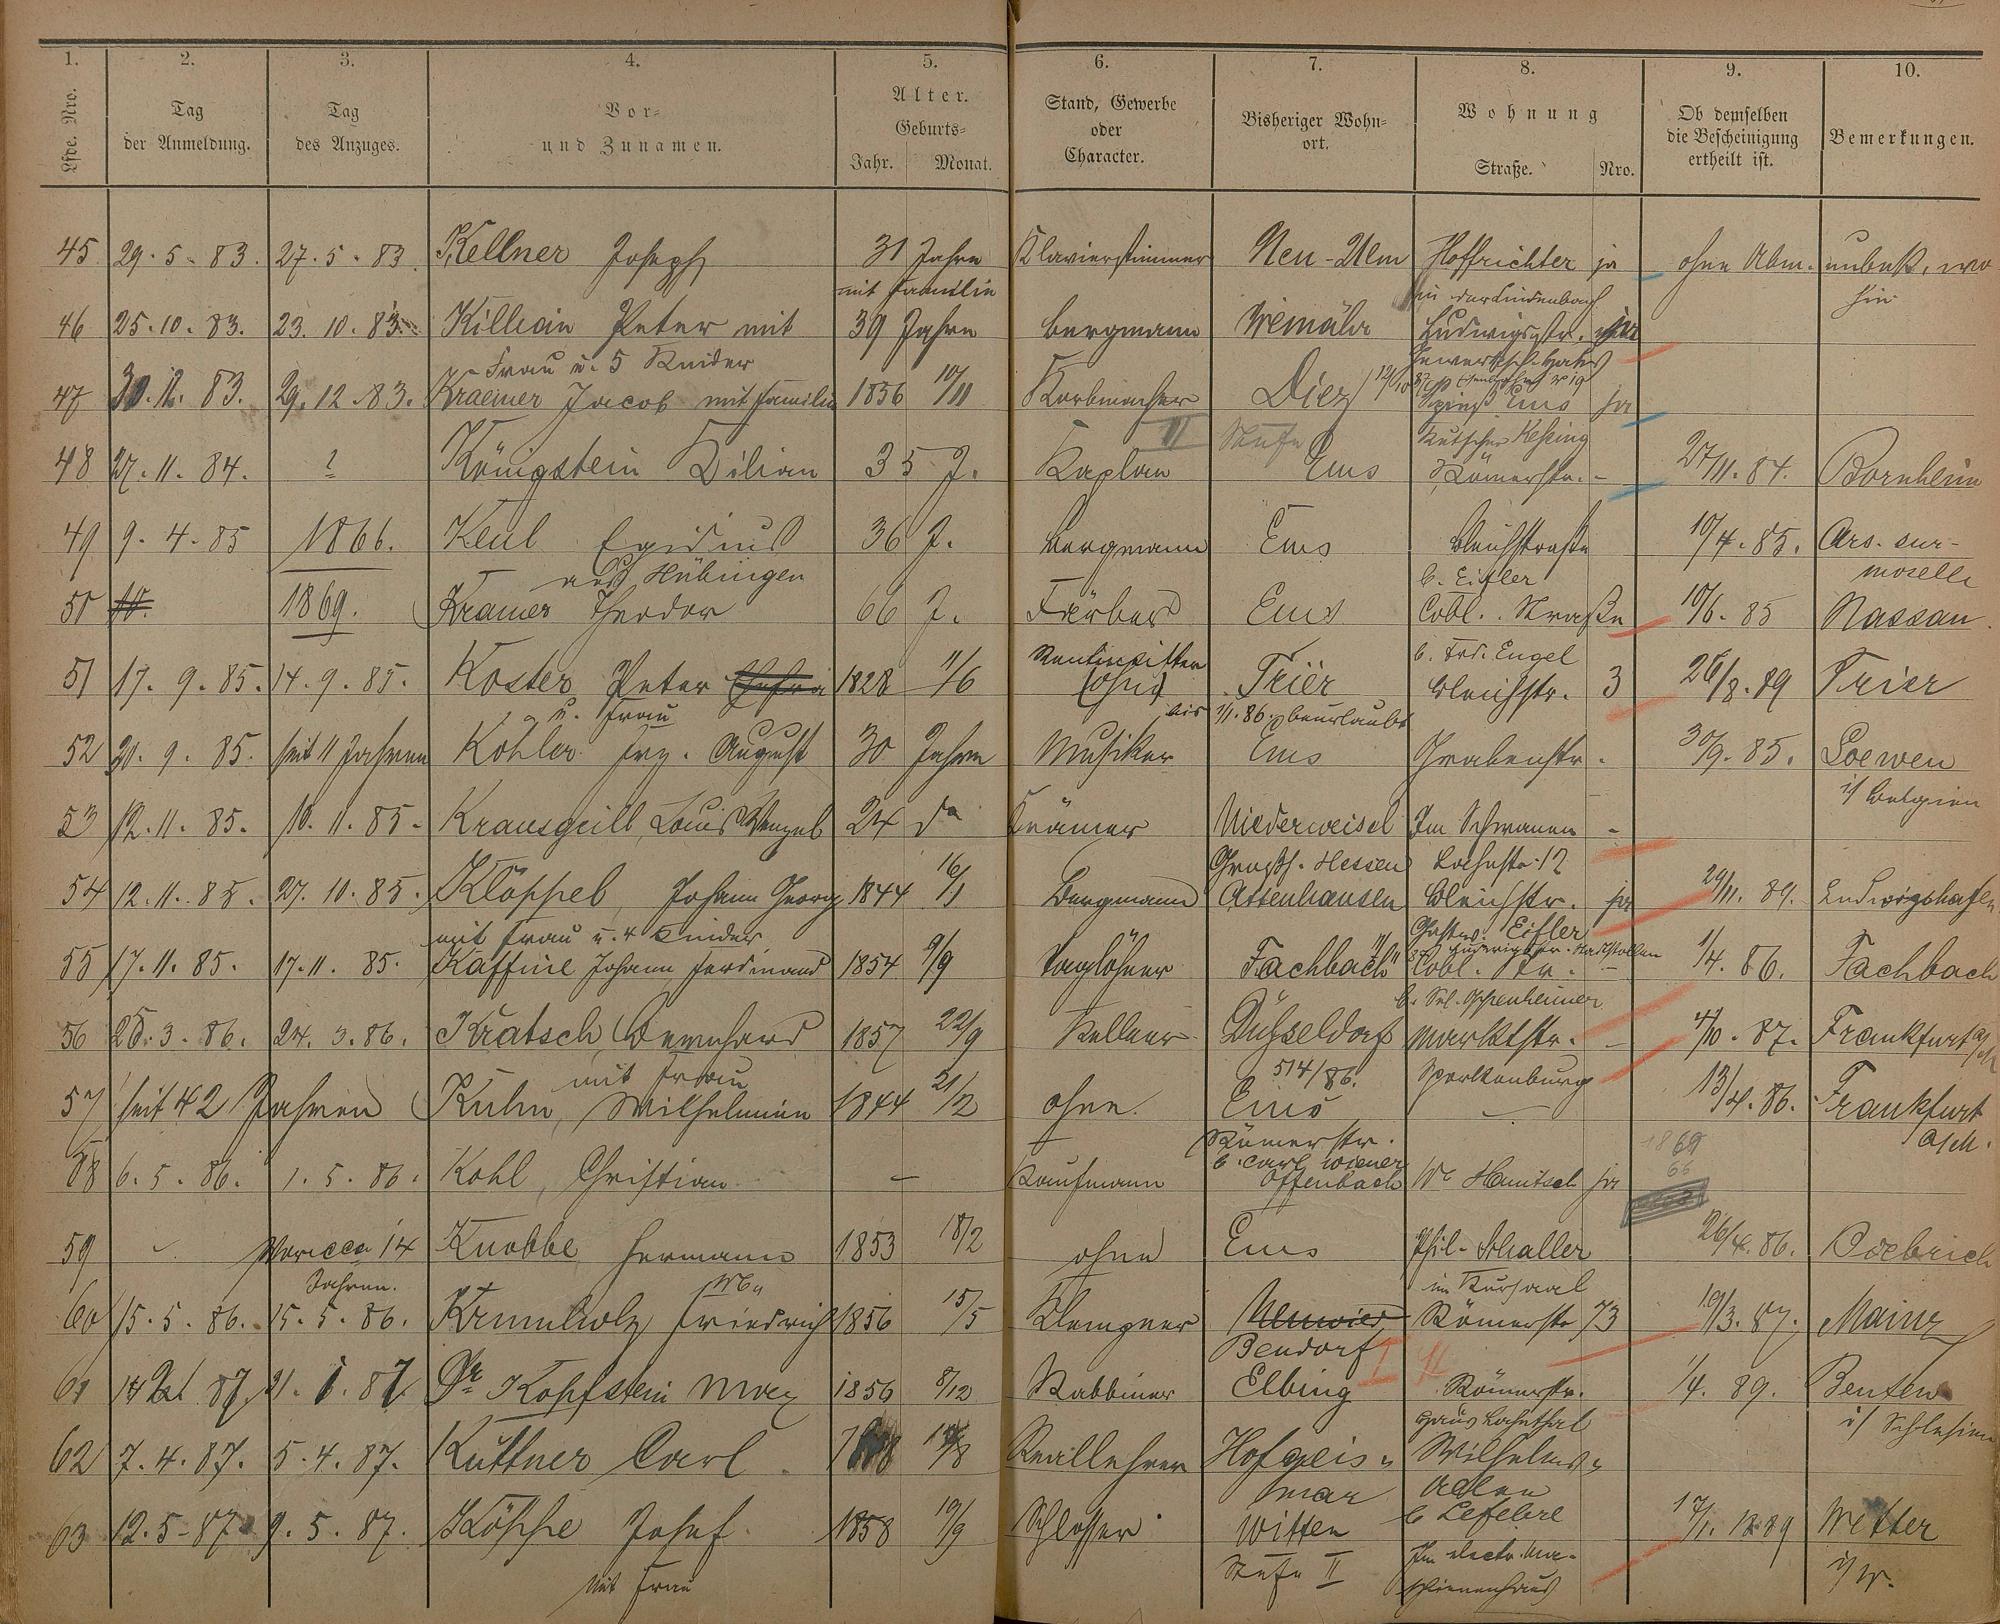 1. 2. 3. 4. 5. 6. 7. 8. 9. 10.
Lfde. Nro. Tag der Anmeldung. Tag des Anzuges. Vor- und Zunamen. Alter. Geburts- Jahr. Monat. Stand, Gewerbe oder Character. Bisheriger Wohn- ort. Wohnung Straße. Nro. Ob demselben die Bescheinigung ertheilt ist. Bemerkungen.
45 29. 5. 83. 27. 5. 83 Kellner Joseph 31 Jahre Klavierstimmer Neu-Ulm Hoffrichter ja ohne Abm. unbek. wo-
mit Familie in der Lindenbach hin
46 25. 10. 83. 23. 10. 83. Killian Peter mit 39 Jahre Bergmann Ludwigstr.
Frau u. 5 Kinder
47 29. 12. 83. Kraemer Jacob mit Familie 1856 10/11 Korbmacher Diez Ems ja
II Stufe Kutscher
48 27. 11. 84. ? Königstein Kilian 35 J. Kaplan Ems Römerstr. - 27/11. 84. Bornheim
49 9. 4. 85 1866. Keul Egidius 36 J. Bergmann Ems Bleichstraße 10/4. 85. Ars-sur-
aus Hübingen b. Eifler moselle
50 1869. Kramer Theodor 66 J. Färber Ems Cobl. Straße 10/6. 85 Nassau.
b. Frd. Engel
51 17. 9. 85. 14. 9. 85. Koster Peter 1828 11/6 (ohne) Trier Bleichstr. 3 26/8. 89 Trier
u. Frau bis 1/1. 86. beurlaubt
52 20. 9. 85. seit 11 Jahren Kohler Frz. August 30 Jahre Musiker Ems Grabenstr. 30/9. 85. Loewen
i/ Belgien
53 12. 11. 85. 10. 11. 85. Krausgrill, Louis Wenzel 24 do Krämer Niederweisel Im Schwanen -
Großh. Hessen Lahnstr. 12
54 12. 11. 85. 27. 10. 85. Klöppel, Johann Georg 1844 16/1 Bergmann Attenhausen Bleichstr. ja 29/11. 89. Ludwigshafen
mit Frau u. 4 Kinder Eifler
55 17. 11. 85. 17. 11. 85. Kaffine Johann Ferdinand 1854 9/9 Taglöhner Fachbach Cobl. Str. - 1/4. 86. Fachbach
b. Sal. Oppenheimer
56 25. 3. 86. 24. 3. 86. Kratsch, Bernhard 1857 22/9 Kellner Düsseldorf Marktstr. - 4/10. 87. Frankfurt a/M
mit Frau 5/4/86. Sporkenburg
57 seit 42 Jahren Kuhn, Wilhelmine 1844 21/12 ohne Ems - 13/4. 86. Frankfurt
Römerstr. a/M.
b. Carl Wiener 1869
66
58 6. 5. 86. 1. 5. 86. Kohl, Christian - Kaufmann Offenbach ja
59 14 Knobbe Hermann 1853 18/2 ohne Ems Phil. Schaller 26/4. 86. Biebrich
Jahren. im Kursaal
60 15. 5. 86. 15. 5. 86. Krumholz Friedrich 1856 15/5 Klempner Neuwied Römerstr 73 19/3. 87. Mainz
Bendorf
61 Dr. Kopfstein Max 1856 8/12 Rabbiner Elbing Römerstr. 1/4. 89. Beuten
Haus Lahnthal i/ Schlesien
62 7. 4. 87. 5. 4. 87. Kuttner Carl. Reallehrer Hofgeis- Wilhelms-
mar Allee
b Lefebre
63 12. 5. 87 9. 5. 87. Köppe Josef. 1858 19/9 Schlosser Witten 17/1. 1889 Wetter
mit Frau Stufe II Im electr. Ma- i/ W.
schinenhaus